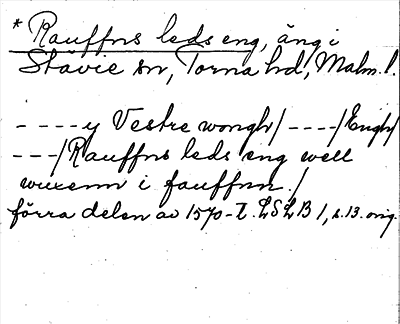 * Rauffns leds eng, äng i
Stävie sn, Torna hd, Malm. l.
- - - - y Vestre wongh/ - - - -/Engh/
- - -/Rauffns leds eng well
wurenn i fauffnn./
förra delen av 1570-t. LSLB 1, s. 13. orig.